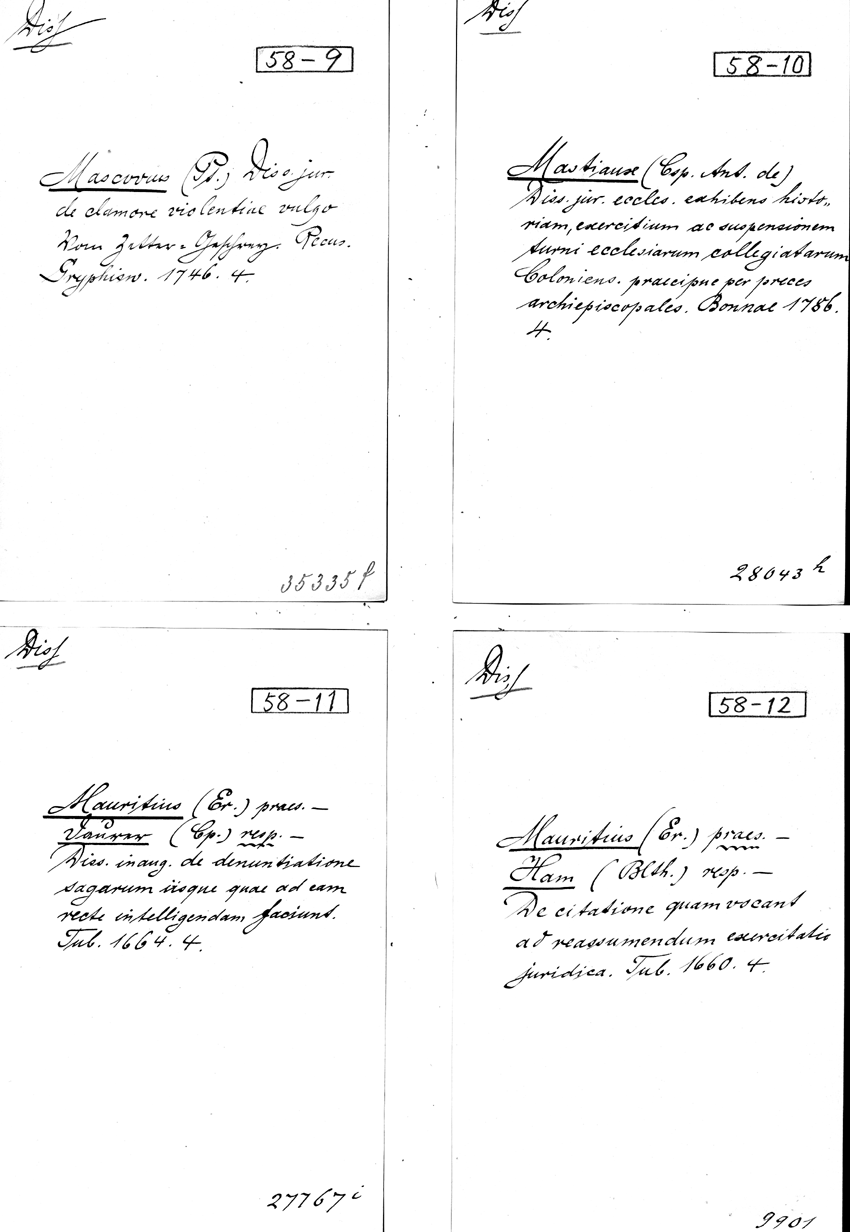 Diss
58-9
Mascovius (Pt.) Diss. jur.
de clamore violentiae vulgo
Vom Zetter-Geschrey. Recus.
Gryphisw. 1746. 4.
35335 f
Diss
58-10
Mastiaux (Csp. Ant. de)
Diss. jur. eccles. exhibens histo„
riam, exercitium ac suspensionem
turni ecclesiarum collegiatarum
Coloniens. praecipue per preces
archiepiscopales. Bonnae 1786.
4.
28043 h
Diss
58-11
Mauritius (Er.) praes. —
Taurer (Cp.) resp. —
Diss. inaug. de denuntiatione
sagarum iisque quae ad eam
recte intelligendam faciunt.
Tub. 1664. 4.
27767 i
Diss
58-12
Mauritius (Er.) praes. —
Ham (Blth.) resp. —
De citatione quam vocant
ad reassumendum exercitatio
juridica. Tub. 1660. 4.
9901